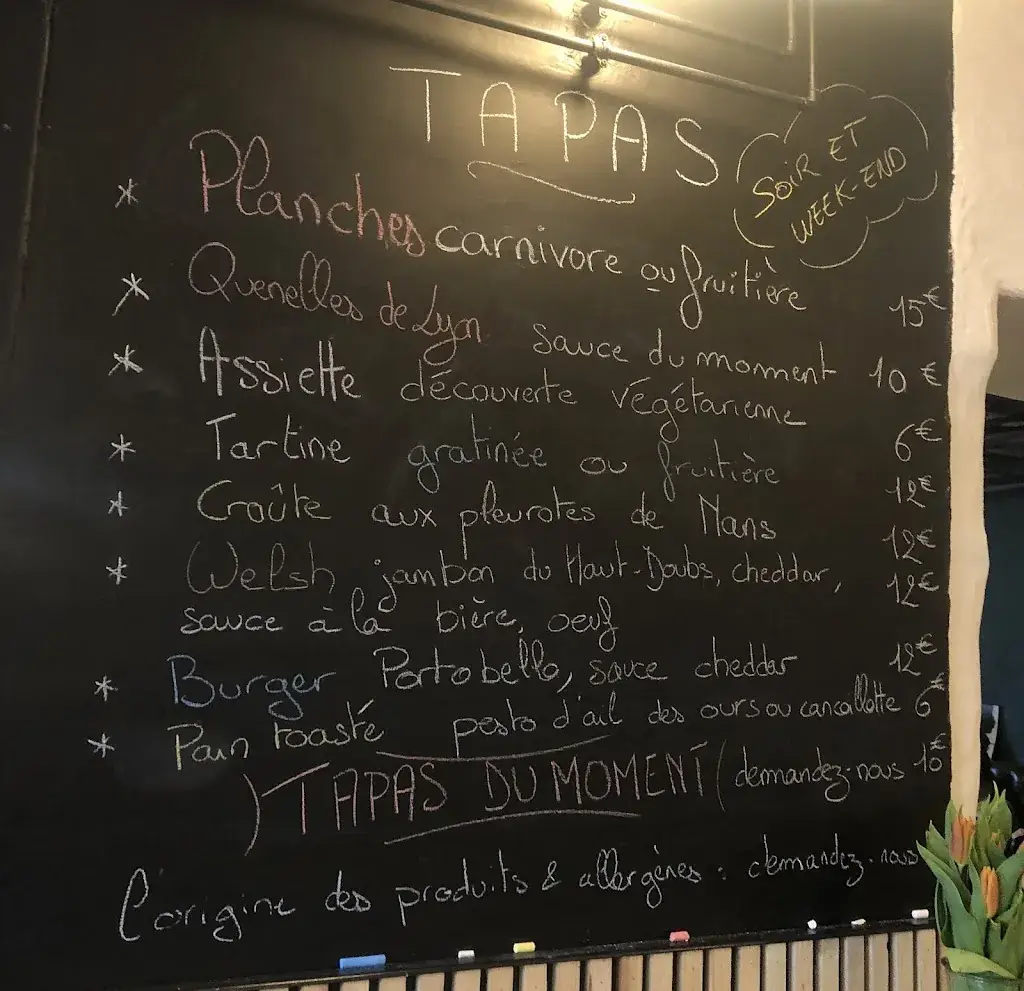 TAPAS
SOIR ET
WEEK-END
* Planches carnivore ou fruitière 15€
* Quenelles de Lyon sauce du moment 10€
* Assiette découverte végétarienne 6€
* Tartine gratinée ou fruitière 12€
* Croûte aux pleurotes de Nans 12€
* Welsh jambon du Haut-Doubs, cheddar, 12€
sauce à la bière, oeuf
* Burger Portobello, sauce cheddar 12€
* Pain toasté pesto d'ail des ours ou cancoillotte 6€
) TAPAS DU MOMENT ( demandez-nous 10€
L'origine des produits & allergènes : demandez-nous